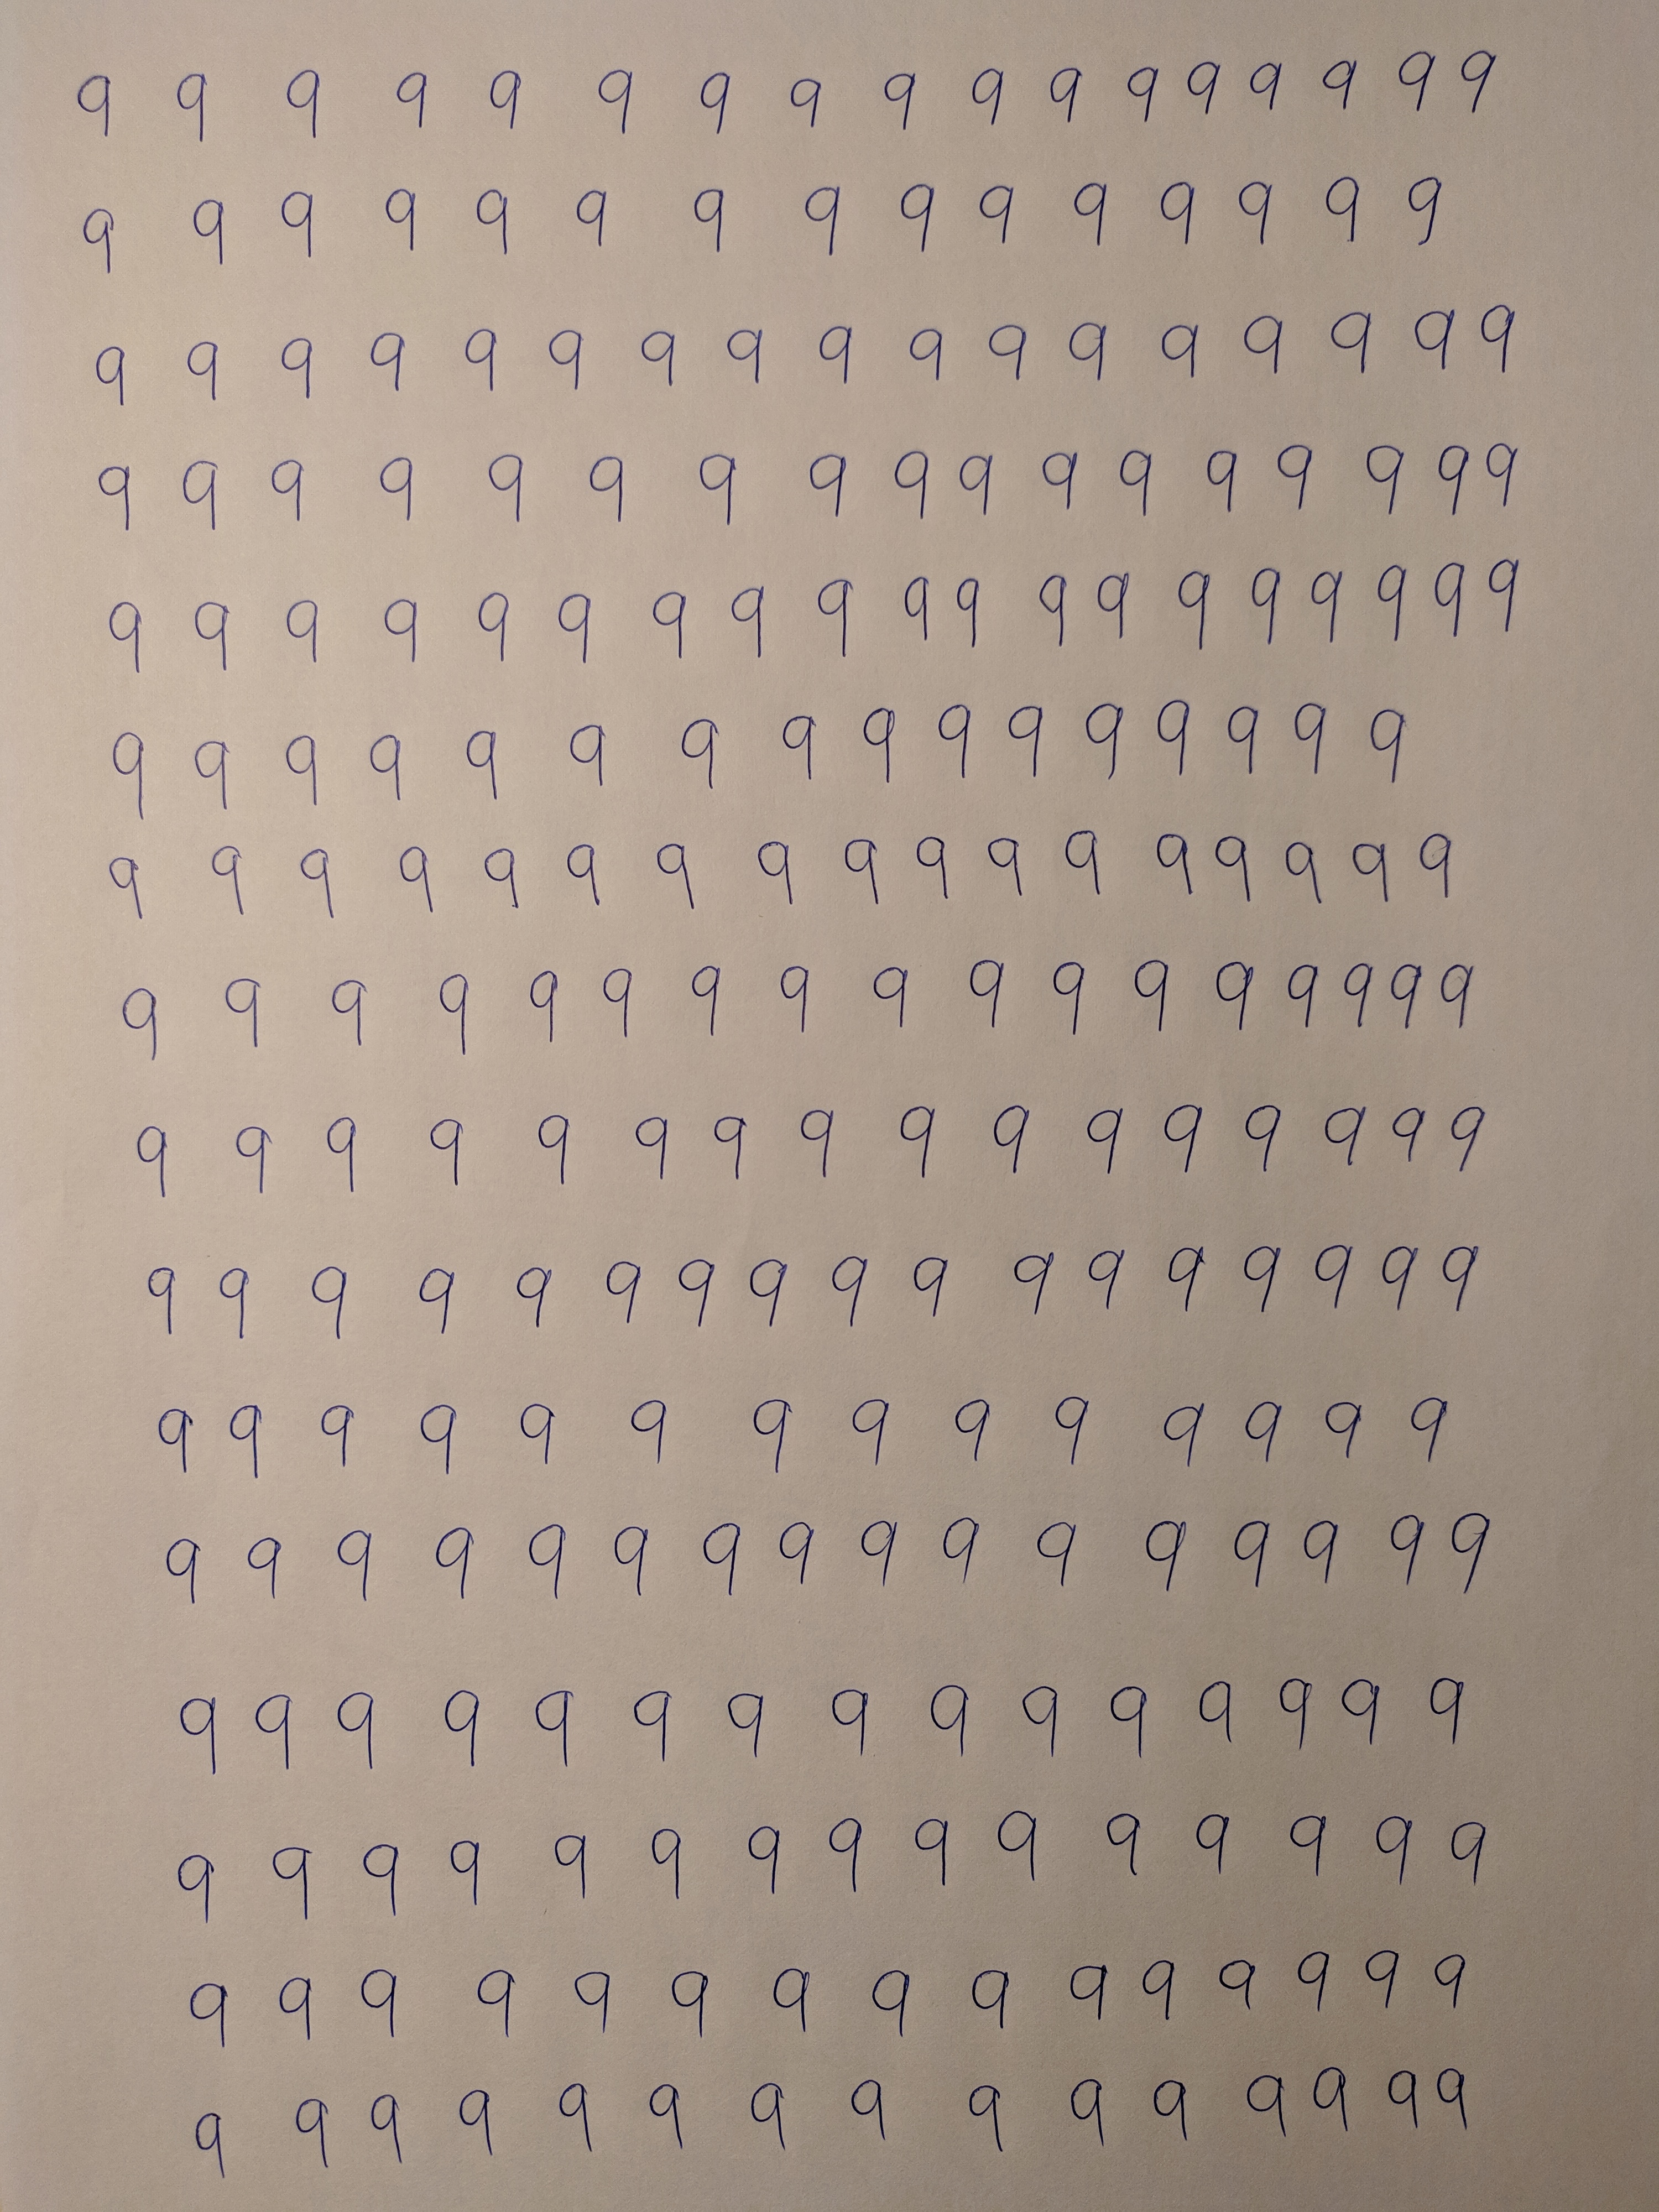 9 9 9 9 9 9 9 9 9 9 9 9 9 9 9 9 9
9 9 9 9 9 9 9 9 9 9 9 9 9 9 9
9 9 9 9 9 9 9 9 9 9 9 9 9 9 9 9 9
9 9 9 9 9 9 9 9 9 9 9 9 9 9 9 9 9
9 9 9 9 9 9 9 9 9 9 9 9 9 9 9 9 9 9 9
9 9 9 9 9 9 9 9 9 9 9 9 9 9 9 9
9 9 9 9 9 9 9 9 9 9 9 9 9 9 9 9 9
9 9 9 9 9 9 9 9 9 9 9 9 9 9 9 9 9
9 9 9 9 9 9 9 9 9 9 9 9 9 9 9 9
9 9 9 9 9 9 9 9 9 9 9 9 9 9 9 9 9
9 9 9 9 9 9 9 9 9 9 9 9 9 9
9 9 9 9 9 9 9 9 9 9 9 9 9 9 9 9
9 9 9 9 9 9 9 9 9 9 9 9 9 9 9
9 9 9 9 9 9 9 9 9 9 9 9 9 9 9
9 9 9 9 9 9 9 9 9 9 9 9 9 9 9
9 9 9 9 9 9 9 9 9 9 9 9 9 9 9